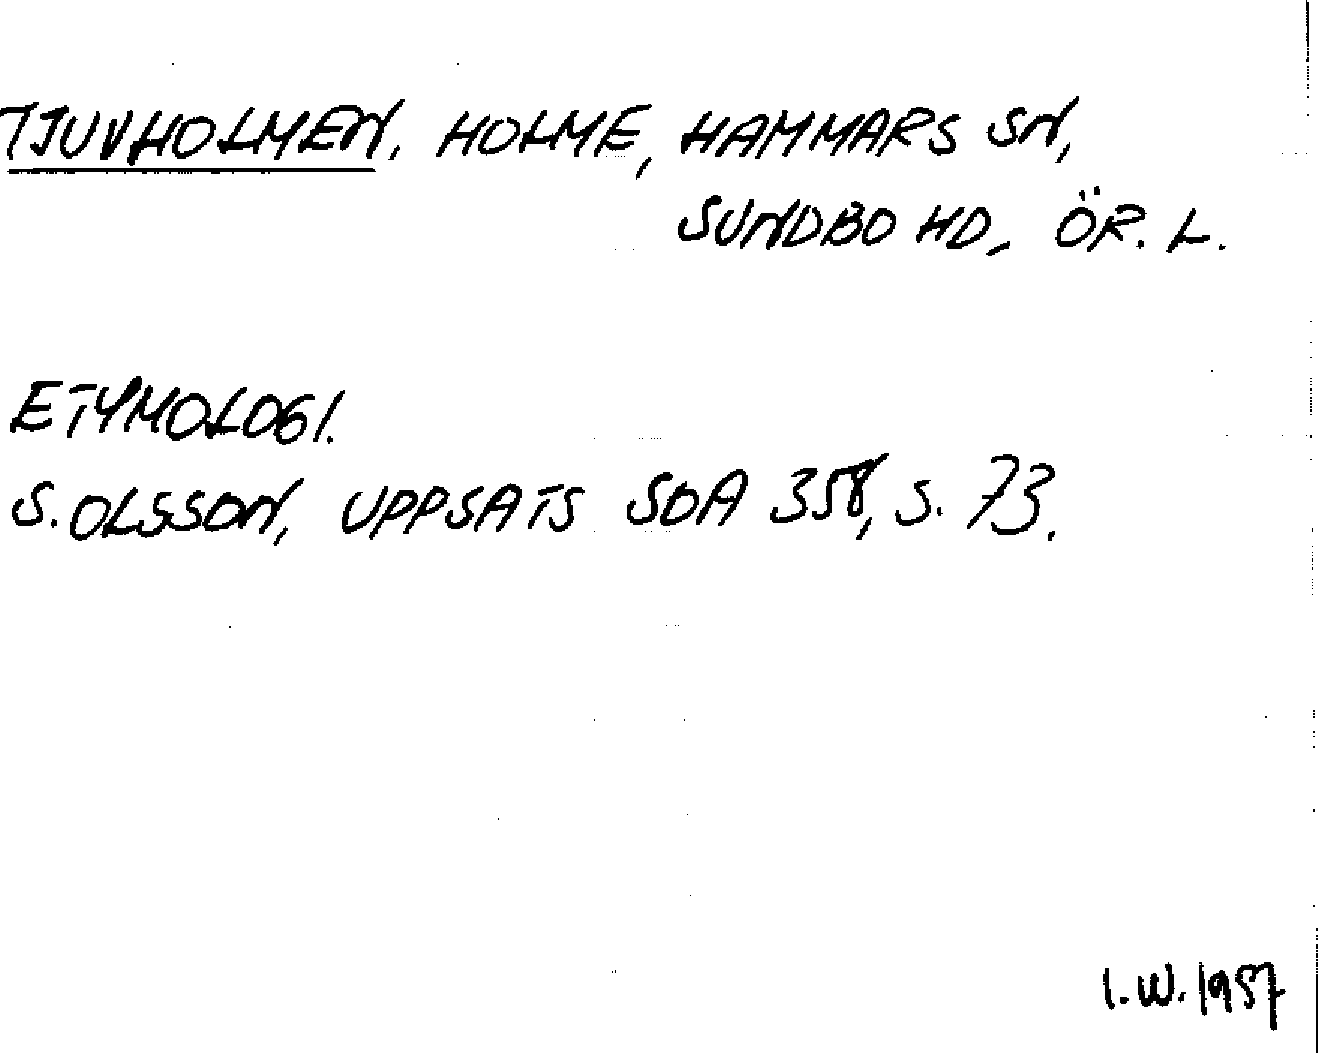 TJUVHOLMEN. HOLME, HAMMARS SN,
SUNDBO HD, ÖR. L.
ETYMOLOGI.
S. OLSSON, UPPSATS SOA 358, S. 73.
I.W. 1957